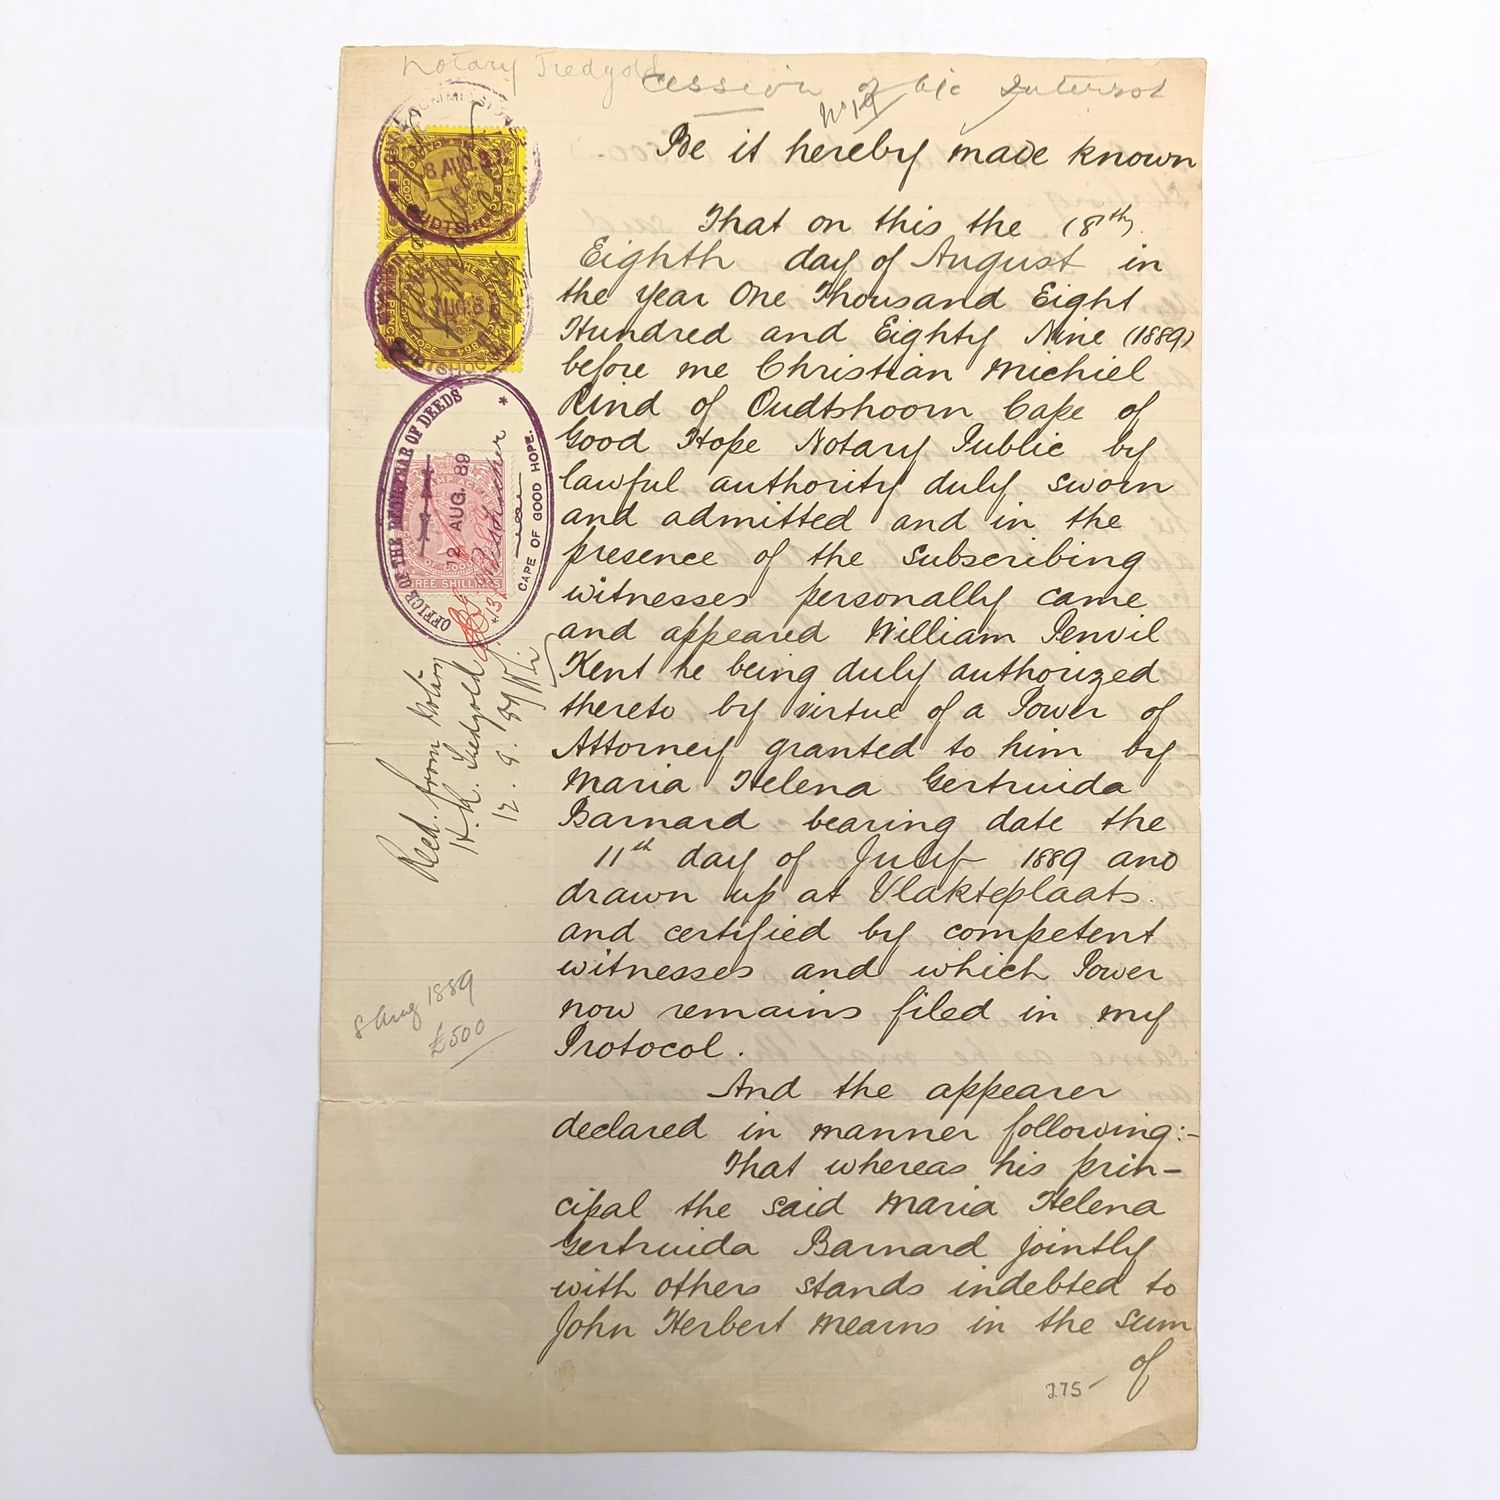 Notary Tredgold
Cession of Life Interest
No 19
Be it hereby made known
That on this the (8th)
Eighth day of August in
the year One Thousand Eight
Hundred and Eighty Nine (1889)
before me Christian Michiel
Rind of Oudtshoorn Cape of
Good Hope Notary Public by
lawful authority duly sworn
and admitted and in the
presence of the subscribing
witnesses personally came
and appeared William Penvil
Kent he being duly authorized
thereto by virtue of a Power of
Attorney granted to him by
Maria Helena Gertruida
Barnard bearing date the
11th day of July 1889 and
drawn up at Vlakteplaats
and certified by competent
witnesses and which Power
now remains filed in my
Protocol.
And the appearer
declared in manner following:-
That whereas his prin-
cipal the said Maria Helena
Gertruida Barnard jointly
with others stands indebted to
John Herbert Mearns in the sum
of
275
8 AUG. 89
OUDTSHOORN
OFFICE OF THE REGISTRAR OF DEEDS
12 AUG. 89
CAPE OF GOOD HOPE.
THREE SHILLINGS
Recd. from Notary
H. R. Tredgold
12. 9. 89
8 Aug 1889
£500